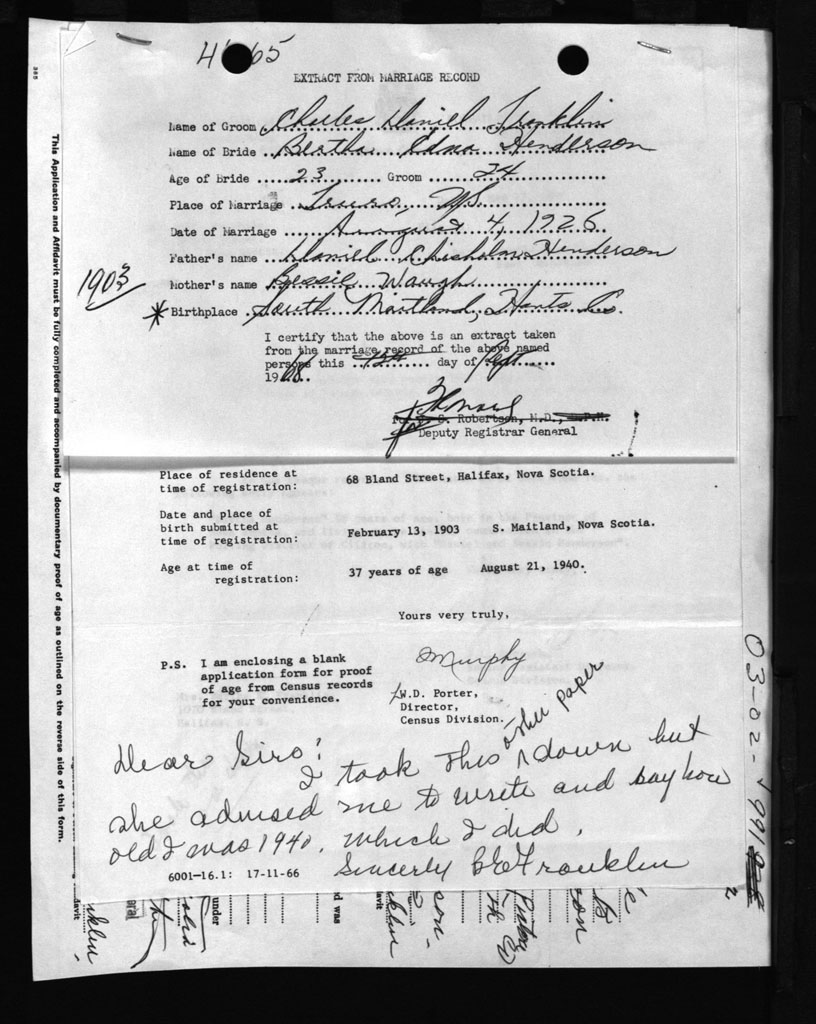 65
EXTRACT FROM MARRIAGE RECORD
Name of Groom Charles Daniel Franklin
Name of Bride Bertha Edna Henderson
Age of Bride 23 Groom 24
Place of Marriage Truro, NS.
Date of Marriage August 4, 1926
Father's name Daniel Chisholm Henderson
Mother's name Bessie Waugh
1903
* Birthplace South Maitland, Hants Co.
I certify that the above is an extract taken
from the marriage record of the above named
persons this 13th day of Sept
1968.
Robertson, M.D.,
Deputy Registrar General
Place of residence at
time of registration: 68 Bland Street, Halifax, Nova Scotia.
Date and place of
birth submitted at
time of registration: February 13, 1903 S. Maitland, Nova Scotia.
Age at time of
registration: 37 years of age August 21, 1940.
Yours very truly,
Murphy
P.S. I am enclosing a blank
application form for proof
of age from Census records
for your convenience.
W.D. Porter,
Director,
Census Division.
Dear Sirs:
I took this other paper down but
she advised me to write and say how
old I was 1940, which I did.
Sincerly B E Franklin
6001-16.1: 17-11-66
This Application and Affidavit must be fully completed and accompanied by documentary proof of age as outlined on the reverse side of this form.
03-02-
2
under
d was